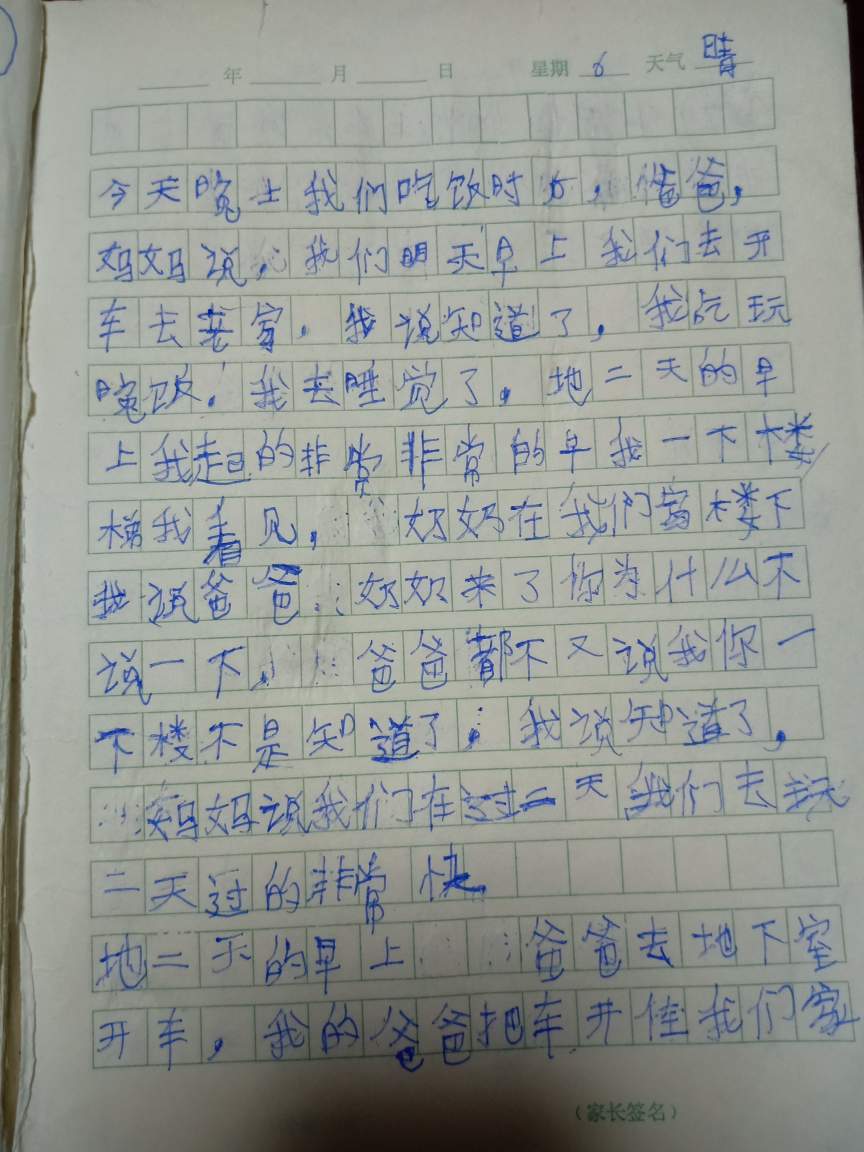 年 月 日 星期 6 天气 晴
今天晚上我们吃饭时方，爸爸，
妈妈说，我们明天早上我们去开
车去老家，我说知道了，我吃玩
晚饭，我去睡觉了。地二天的早
上我起的非常非常的早我一下楼
梯我看见，奶奶在我们富楼下
我说爸爸奶奶来了你为什么不
说一下，爸爸都不又说我你一
下楼不是知道了，我说知道了，
妈妈说我们在过二天我们去玩
二天过的非常快
地二天的早上爸爸去地下室
开车，我的爸爸把车开佳我们家
（家长签名）